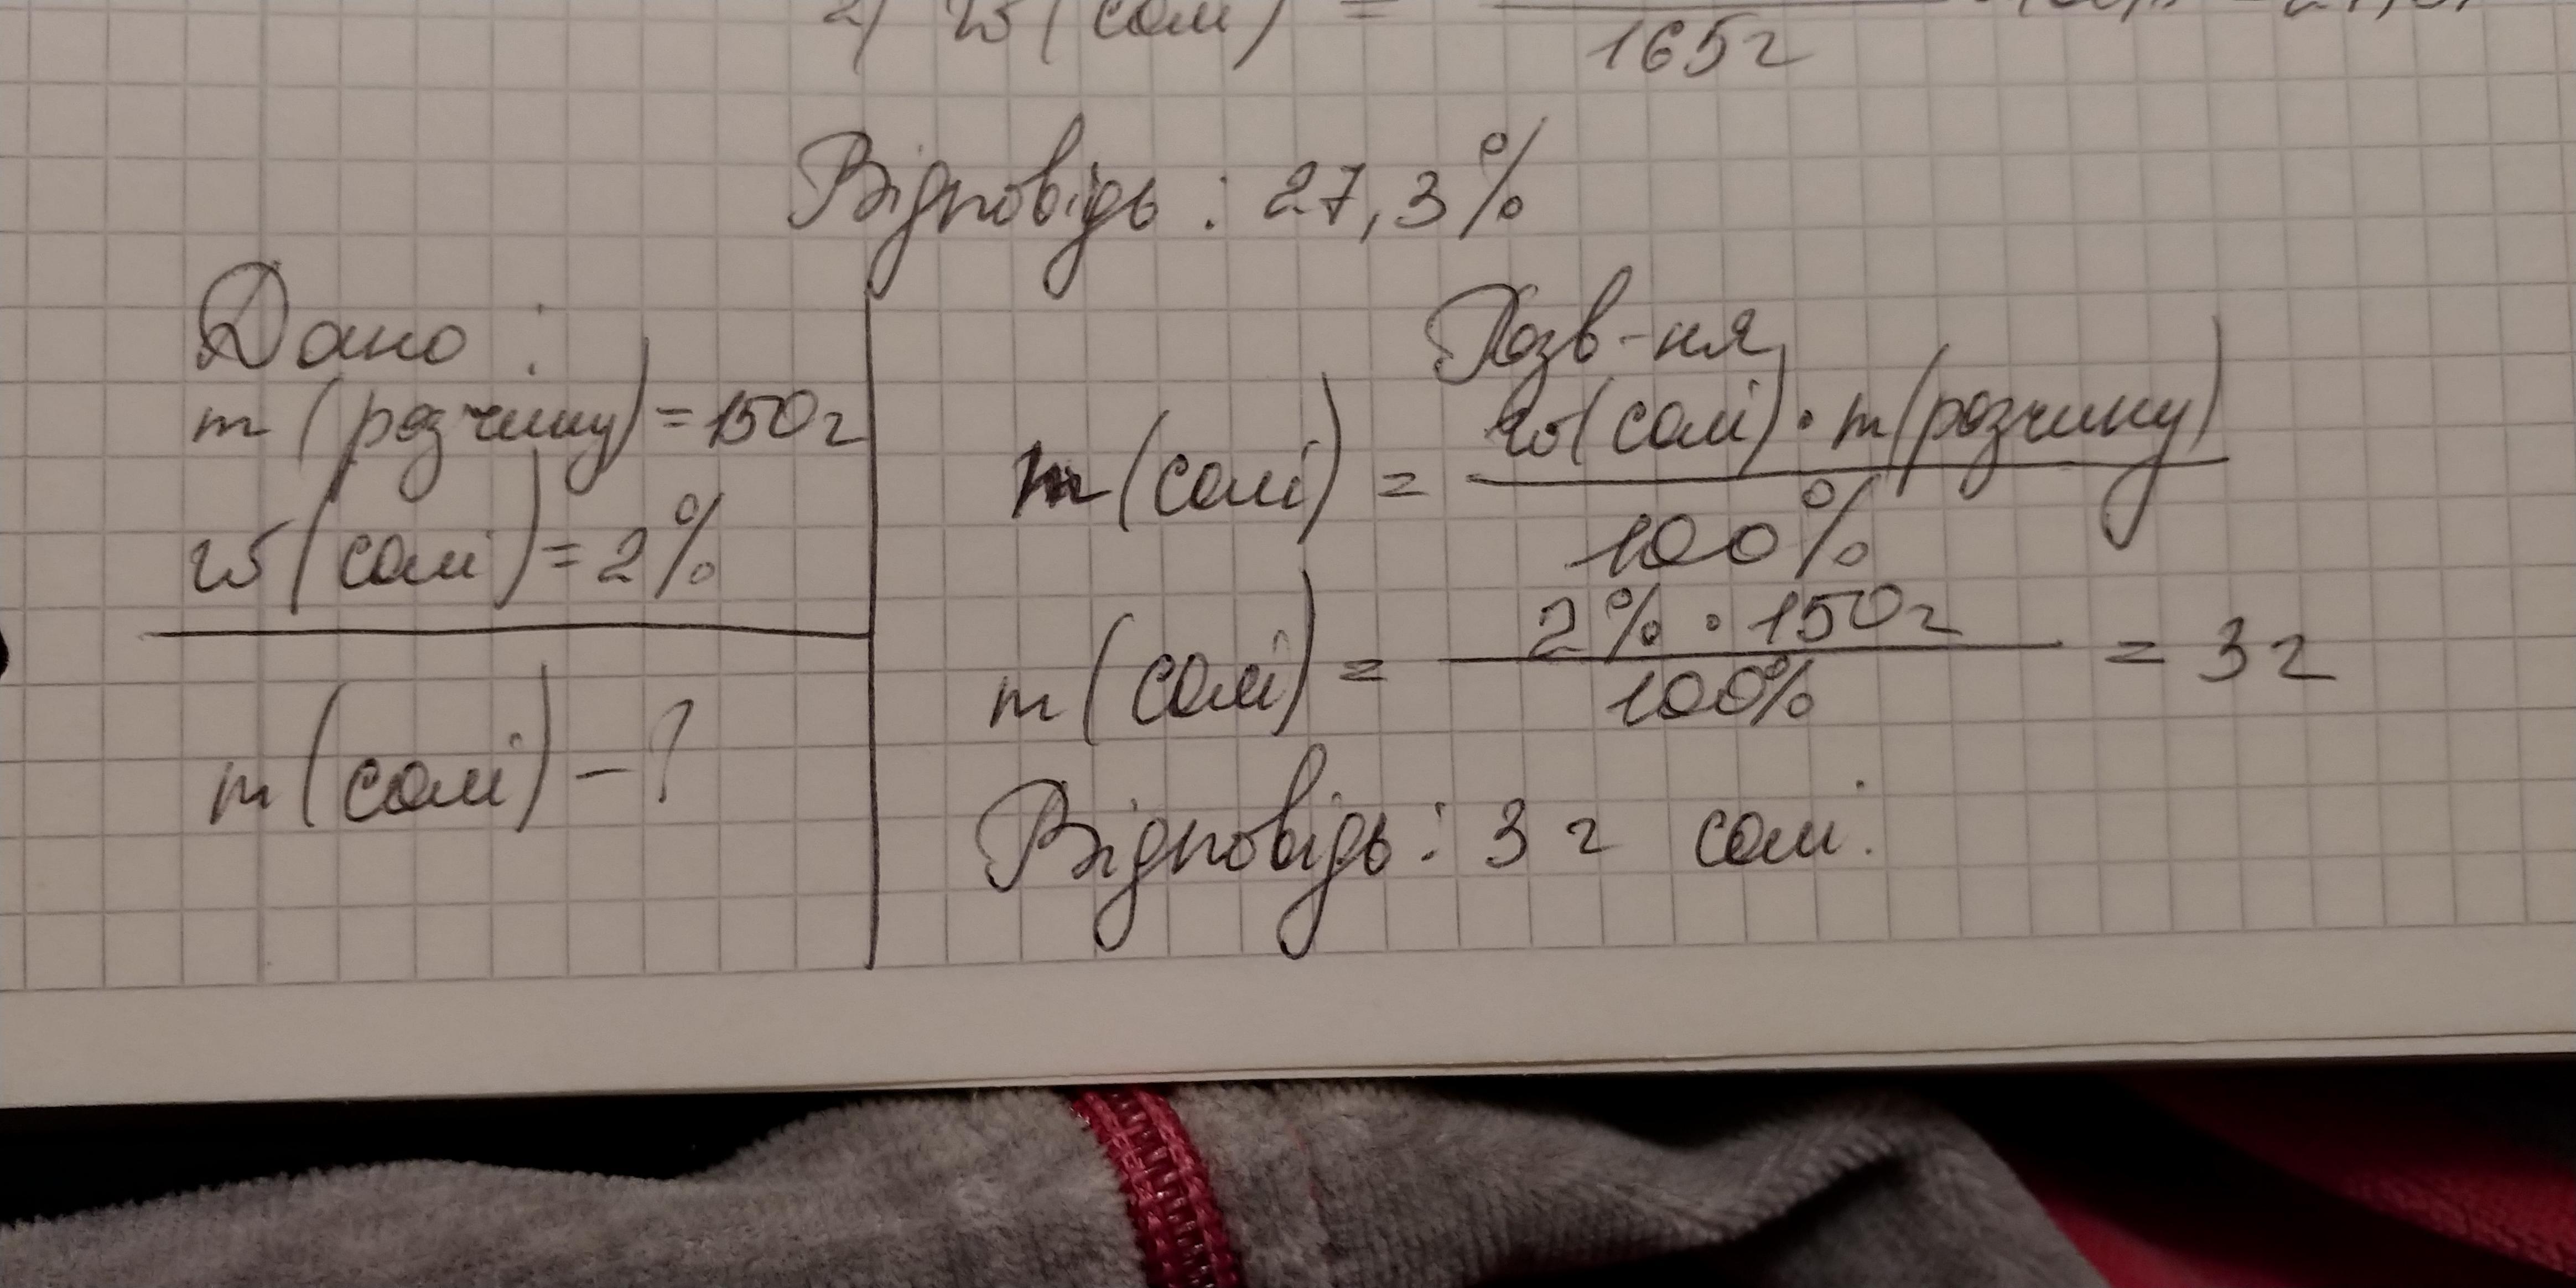 2) w(солі) =
165г
Відповідь: 27,3%
Дано:
m(розчину)=150г
w(солі)=2%
m(солі)-?
Розв-ня
m(солі) = w(солі)·m(розчину)
100%
m(солі) = 2%·150г = 3г
100%
Відповідь: 3г солі.